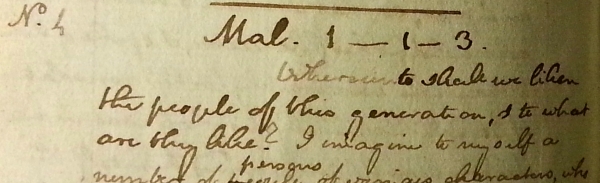 No. 4
Mal. 1 — 1 - 3.
Whereunto shall we liken
the people of this generation, & to what
are they like? I imagine to myself a
persons
number of people of various characters, who